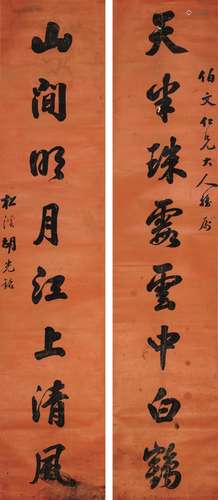 伯文仁兄大人雅属
天半珠霞雲中白鶴
山間明月江上清風
松溪胡光